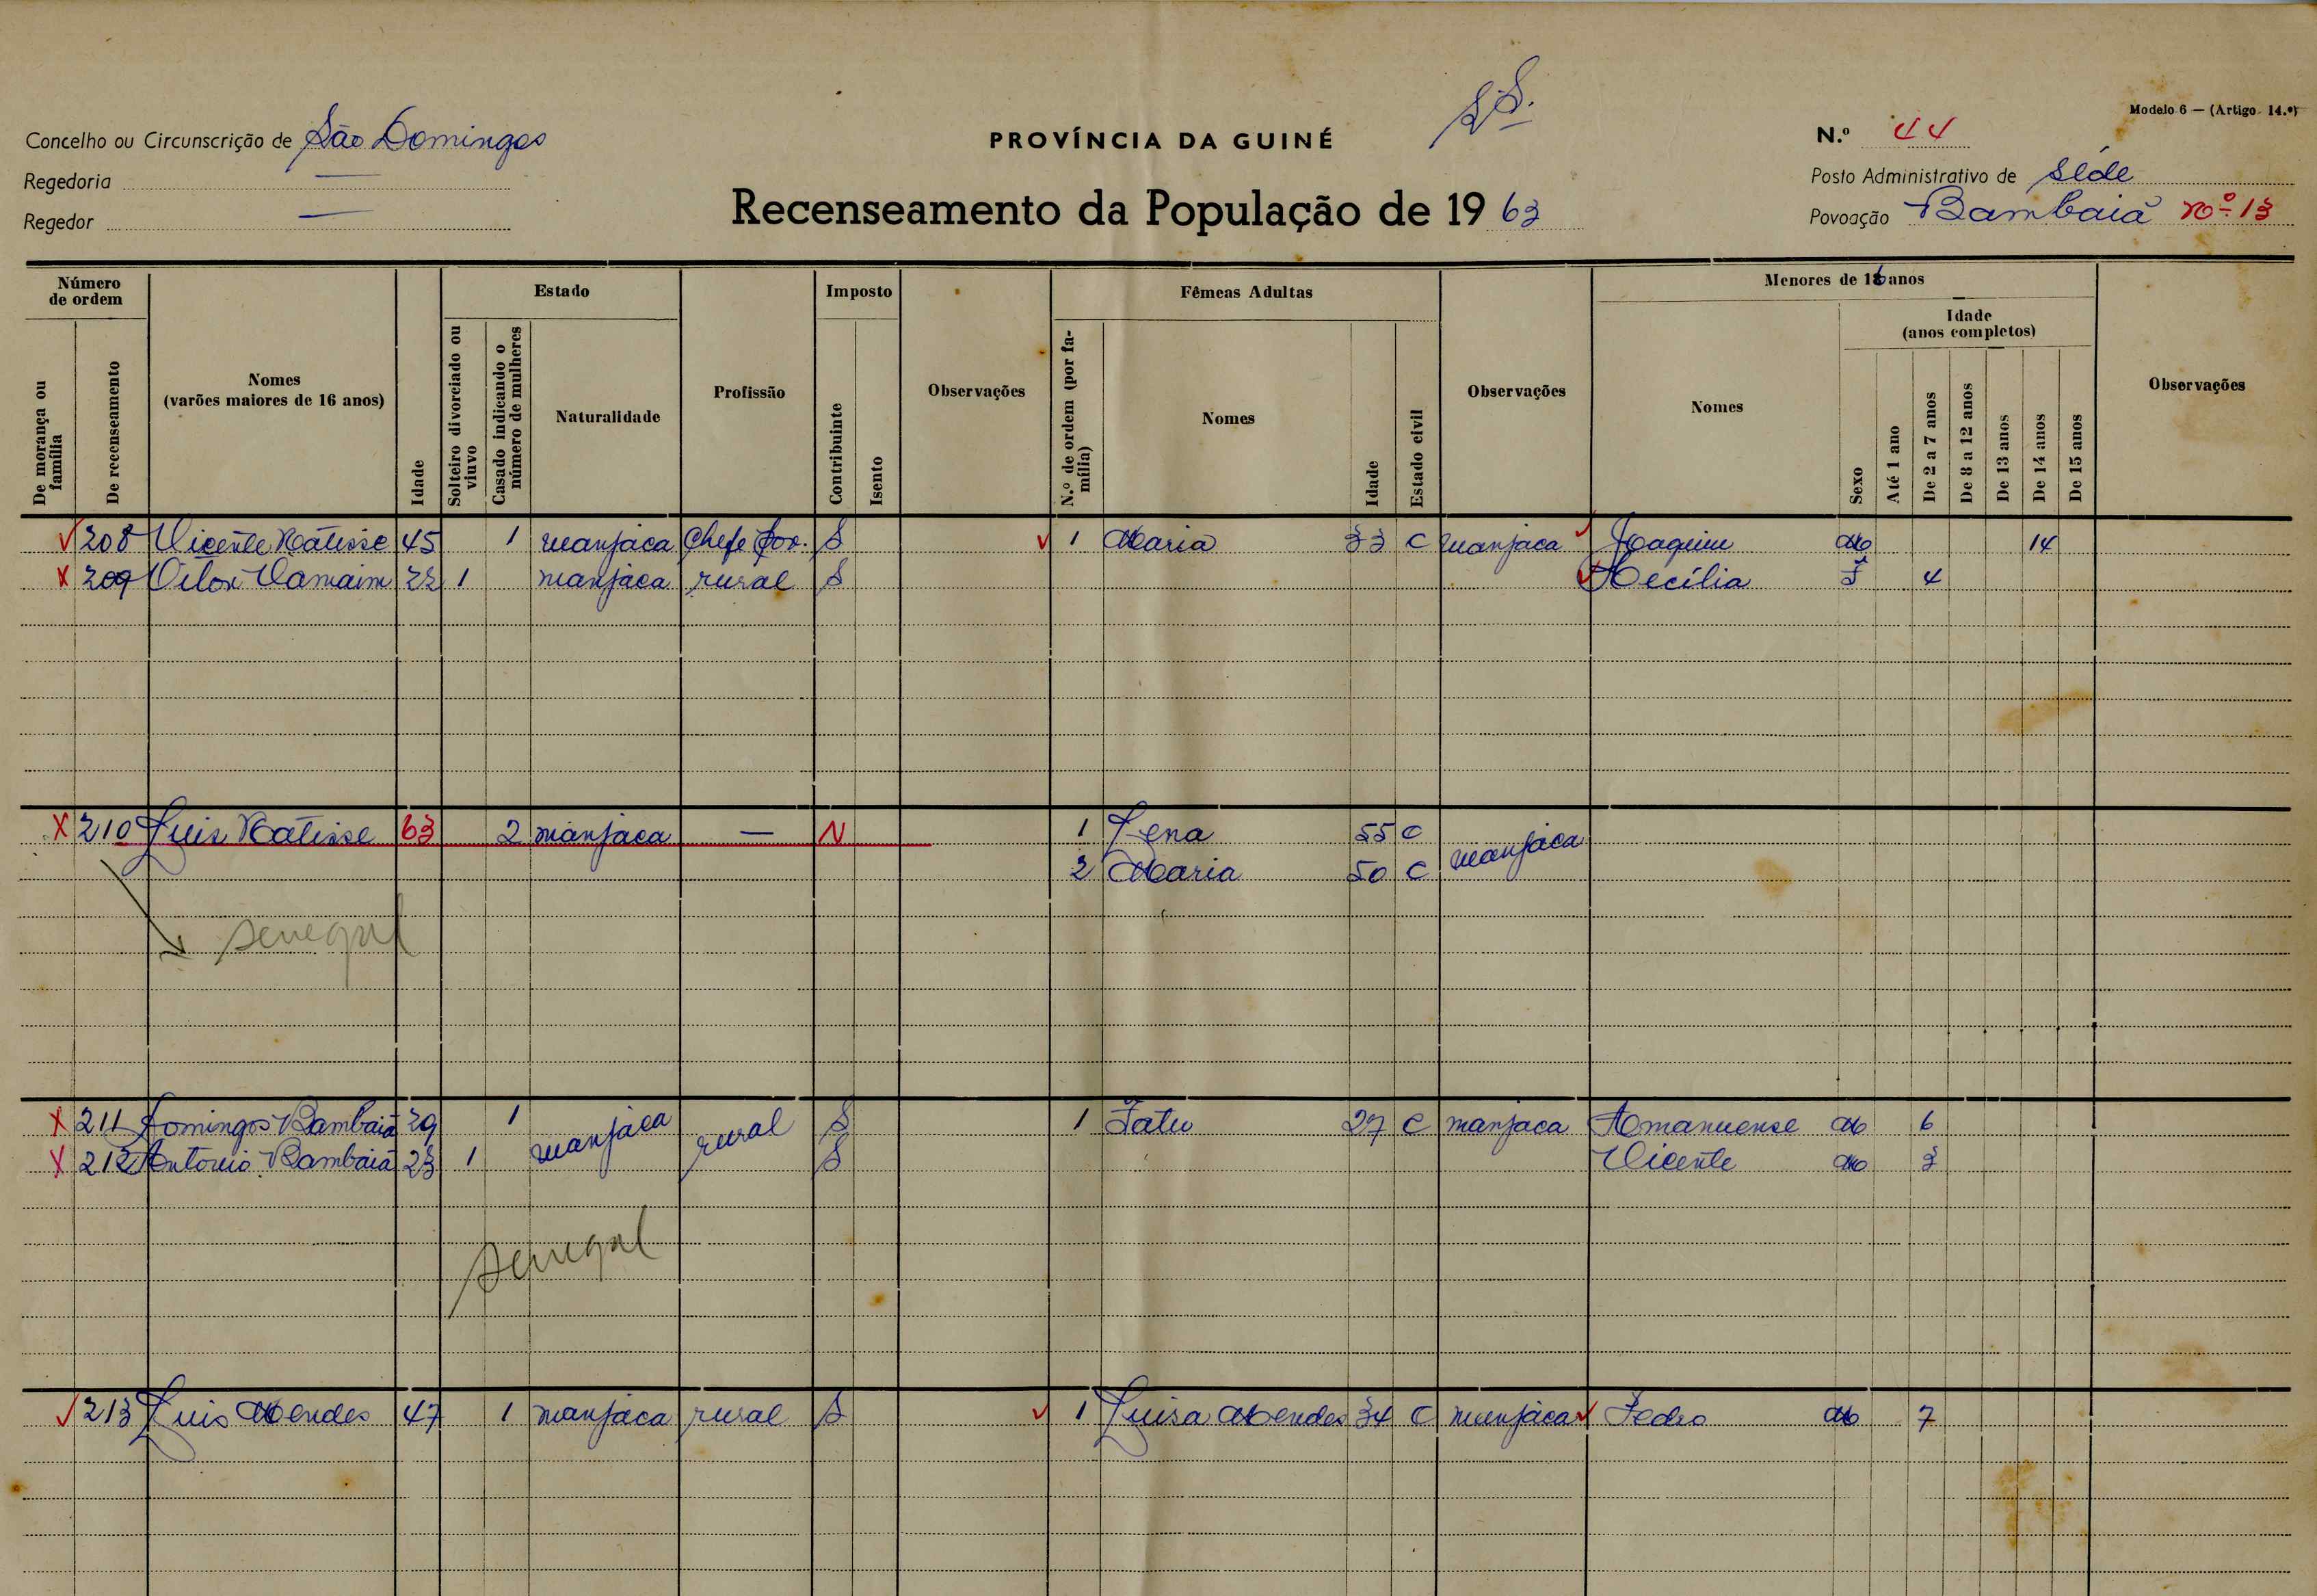 Modelo 6 — (Artigo 14.º)
Concelho ou Circunscrição de São Domingos
PROVÍNCIA DA GUINÉ
N.º 44
Regedoria —
Posto Administrativo de Séde
Regedor —
Recenseamento da População de 1963
Povoação Bambaiã nº 13
Número de ordem
Estado
Imposto
Fêmeas Adultas
Menores de 16 anos
Idade (anos completos)
De morança ou família
De recenseamento
Nomes (varões maiores de 16 anos)
Idade
Solteiro divorciado ou viuvo
Casado indicando o número de mulheres
Naturalidade
Profissão
Contribuinte
Isento
Observações
N.º de ordem (por família)
Nomes
Idade
Estado civil
Observações
Nomes
Sexo
Até 1 ano
De 2 a 7 anos
De 8 a 12 anos
De 13 anos
De 14 anos
De 15 anos
Observações
208 Vicente Natisse 45 1 manjaca Chefe Pov. S 1 Maria 33 C manjaca Joaquim M 14
209 22 1 manjaca rural S Cecília F 4
210 Luis Natisse 63 2 manjaca — N 1 Lena 55 C manjaca
2 Maria 50 C
Senegal
211 Domingos Bambaiã 29 1 manjaca rural S 1 Fatu 27 C manjaca Amanuense M 6
212 António Bambaiã 23 1 S Vicente M 3
Senegal
213 Luis Mendes 47 1 manjaca rural S 1 Luisa Mendes 34 C manjaca Pedro M 7